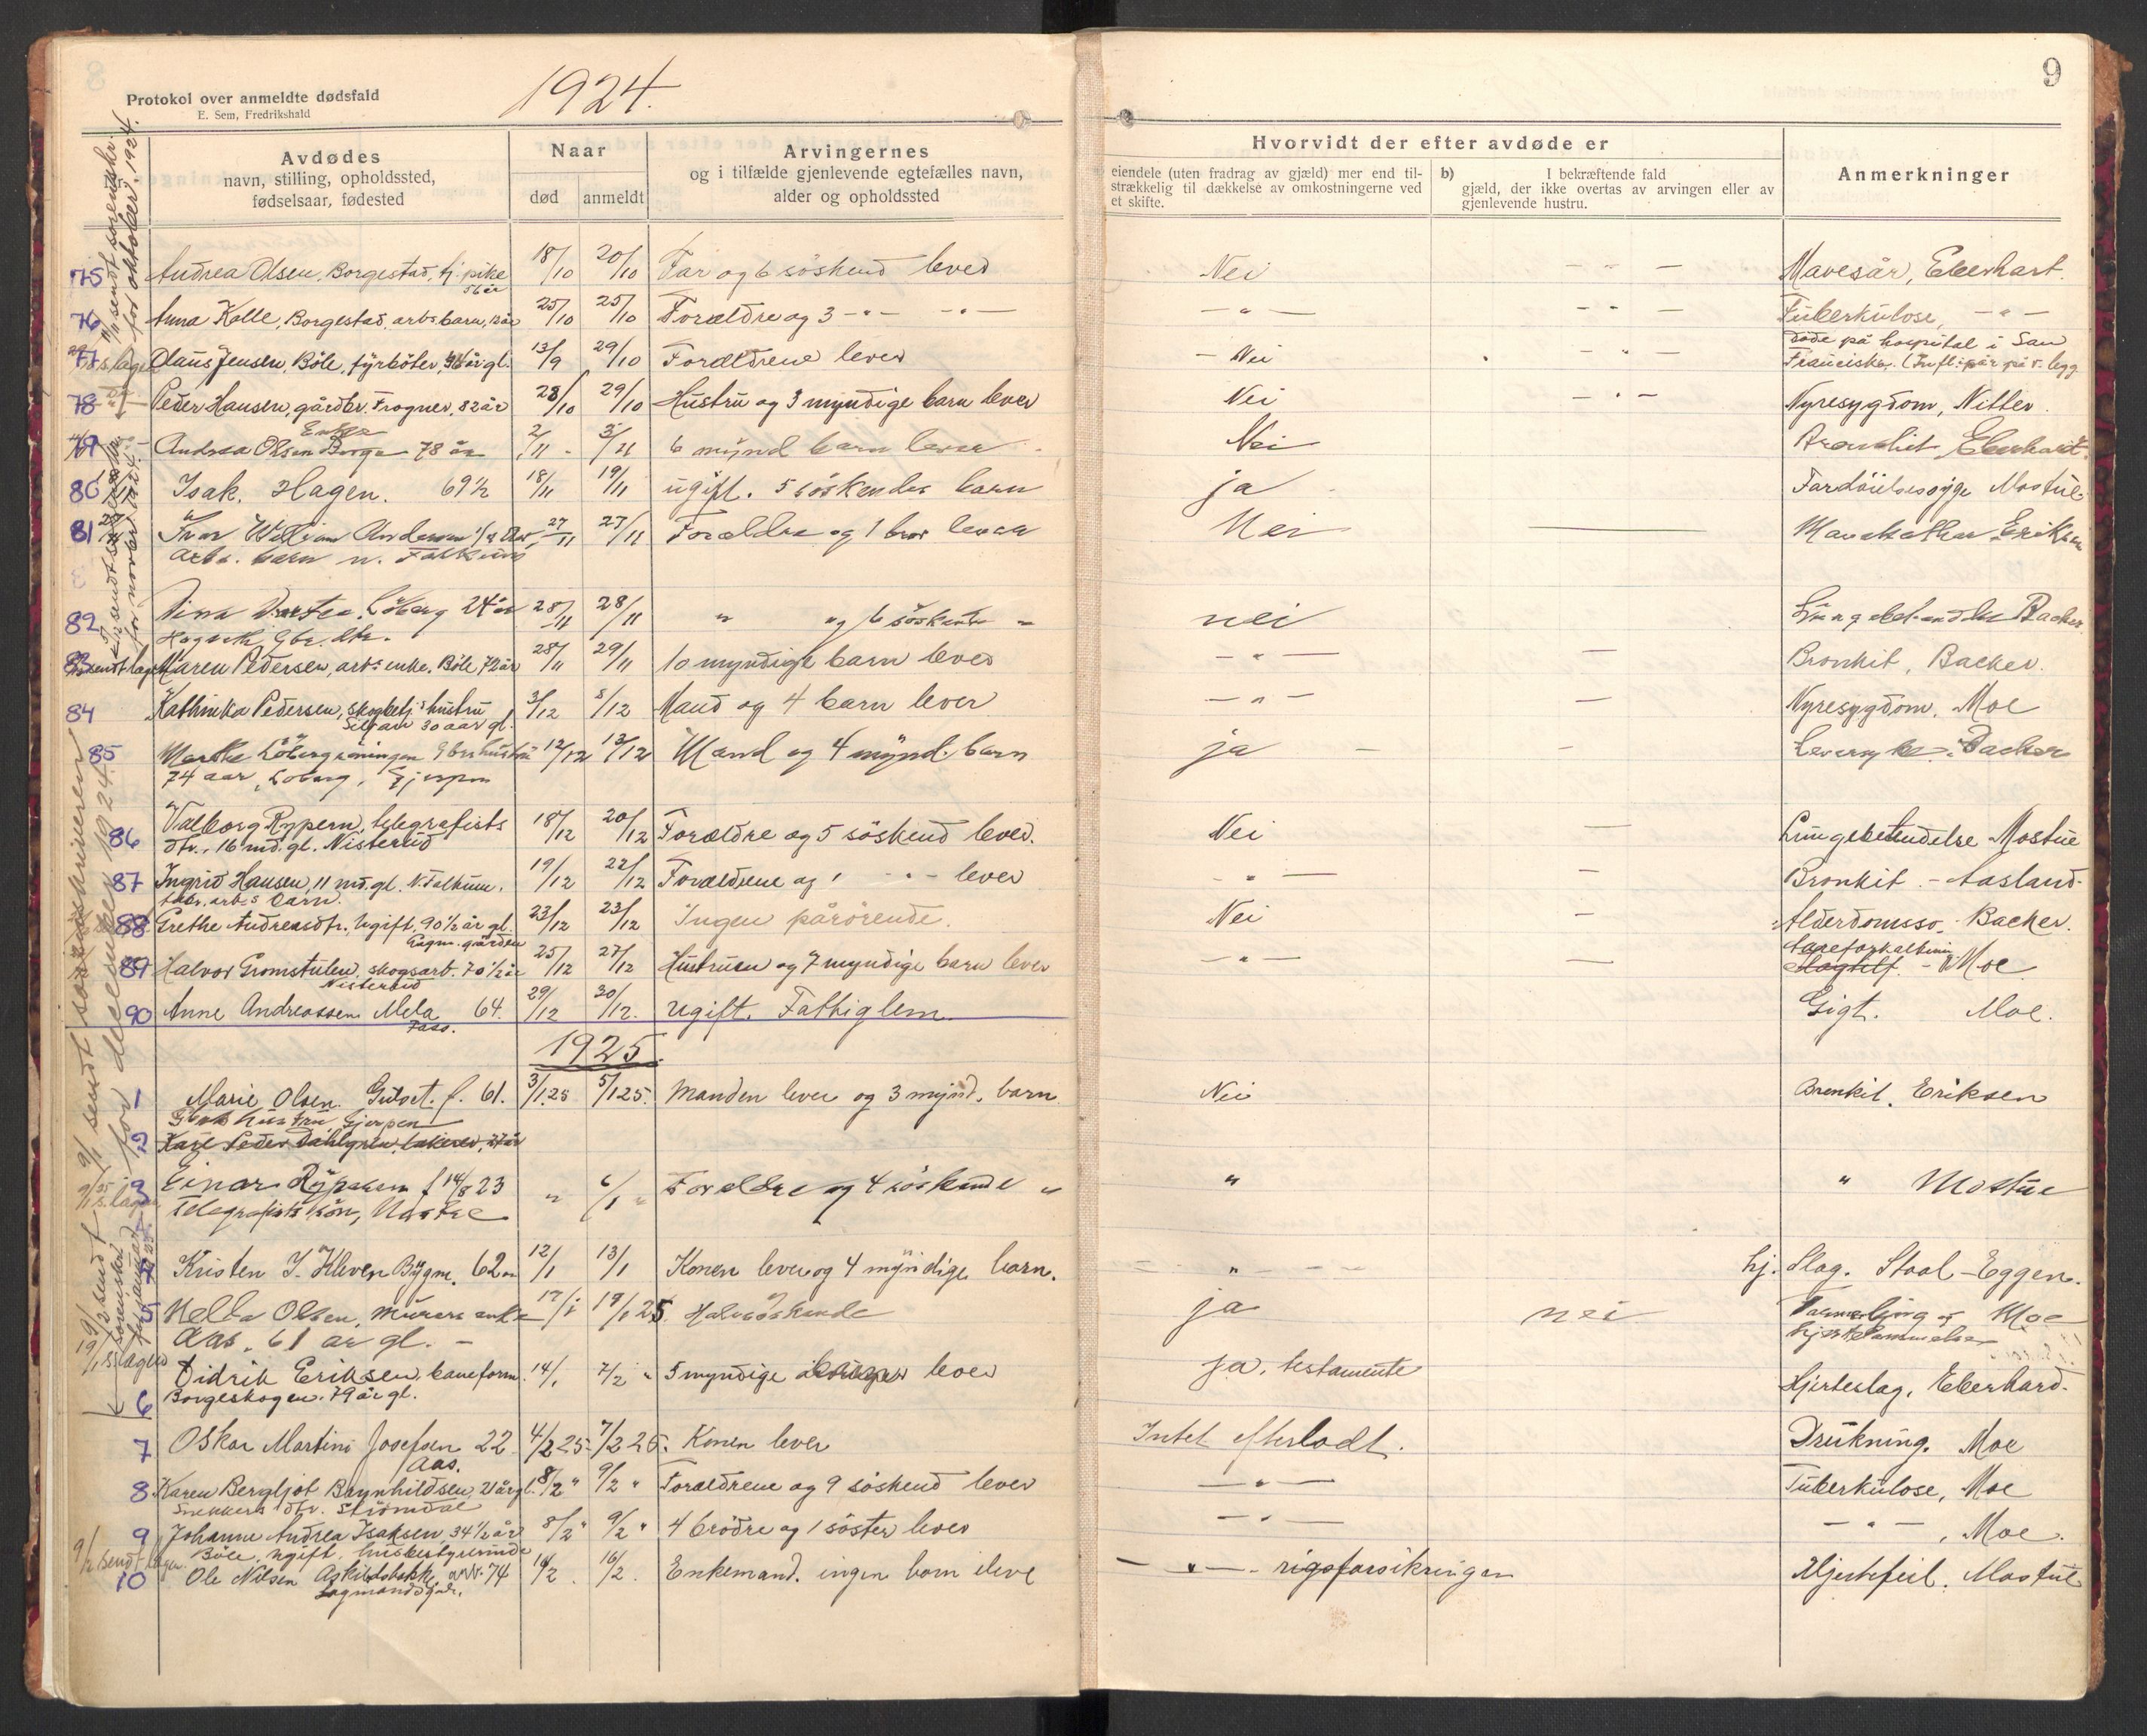 1924.
9
Protokol over anmeldte dødsfald
E. Sem, Fredrikshald
Avdødes
navn, stilling, opholdssted,
fødselsaar, fødested
Naar
død
anmeldt
Arvingernes
og i tilfælde gjenlevende egtefælles navn,
alder og opholdssted
Hvorvidt der efter avdøde er
eiendele (uten fradrag av gjæld) mer end til-
strækkelig til dækkelse av omkostningerne ved
et skifte.
b) I bekræftende fald
gjæld, der ikke overtas av arvingen eller av
gjenlevende hustru.
Anmerkninger
for oktober 1924.
75 Andrea Olsen, Borgestad, tj. pike 18/10 20/10 Far og 6 söskend lever Nei - " - Mavesår, Eberhart.
56 år
76 Anna Kolle, Borgestad, arbs barn, 13 år 25/10 25/10 Forældre og 3 - " - - " - - " - - " - Tuberkulose, - " -
77 Olaus Jensen, Böle, fyrböter, år gl. 13/9 29/10 Forældrene lever - Nei - " - Döde på hospital i San
Francisko. (Infl. sår på v. legg
78 Peder Hansen, gårdbr. Frogner, 82 år 28/10 29/10 Hustru og 3 myndige barn lever Nei - " - Nyresygdom, Nitter.
Enke
Andrea Olsen Borge 78 år 2/11 3/11 6 mynd barn lever Nei Eberhart.
80 Isak. Hagen. 69½ 18/11 19/11 ugift. 5 söskendes barn ja Mostue
81 Ivar William Andersen 27/11 27/11 Forældre og 1 bror lever Nei Eriksen
arb. barn n. Falkum
82 Löberg 24 år 28/11 28/11 " og 6 söskende " nei Backer
83 Maren Pedersen, arbs enke. Böle, 72 år 28/11 29/11 10 myndige barn lever - " - — Bronkit, Backer.
84 Kathinka Pedersen, skogbetj. hustru 3/12 5/12 Mand og 4 barn lever - " - — Nyresygdom. Moe
30 aar gl.
85 Marthe 12/12 13/12 Mand og 4 mynd. barn ja - - Backer
74 aar, Löberg, Gjerpen
86 Valborg Rypern, telegrafists 18/12 20/12 Forældre og 5 söskend lever. Nei — Lungebetendelse Mostue
dtr. 16 md. gl. Nisterud
87 Ingrid Hansen, 11 md. gl. N. Falkum. 19/12 22/12 Forældrene og 1 - " - lever - " - — Bronkit. - Aasland.
arb.s barn.
88 Grethe Andreasdtr. Ugift, 90½ år gl. 23/12 23/12 Ingen pårörende. Nei — Alderdomssv. Backer.
89 Halvor Gromstulen, skogsarb. 70½ år 25/12 27/12 Hustruen og 7 myndige barn lever - " - — Aareforkalkning - Moe
Nisterud
90 Anne Andreassen Mela 64. 29/12 30/12. Ugift. Fattiglem. Gigt. Moe.
1925.
1 Marie Olsen. Gulset. f. 61. 3/1 25 5/1 25. Manden lever og 3 mynd. barn Nei Bronkit. Eriksen
Gbrs hustru Gjerpen
2 Karl Peder Dahlgren
3 Einar f 14/8 23 " 6/1 " Forældre og 4 söskende " " " Mostue
Telegrafists sön,
4 Kristen J. Kleven Bygm. 62 12/1 13/1 Konen lever og 4 myndige barn. - " - hj. Slag. Staal-Eggen.
5 Olsen, Murers enke 17/1 19/1 25 Halvsöskende ja nei Moe
Aas. 61 år gl. -
Didrik Eriksen, baneform. 14/1 7/2 " 5 myndige lever ja, testamente Hjerteslag, Eberhard.
6 Borgeskogen. 79 år gl.
7 Oskar Martini Josefsen 22 4/2 25 7/2 25. Konen lever Intet efterladt. Drukning. Moe
Aas.
8 Karen Bergljot Brynhildsen, 21 år gl. 8/2 " 9/2 " Forældrene og 9 söskend lever - " - Tuberkulose, Moe
Snekkers dtr. Strömdal
9 Johanne Andrea Isaksen, 34½ år 8/2 " 9/2 " 4 brödre og 1 söster lever - " - - " - , Moe.
Böle, ugift, husbestyrerinde
10 Ole Nilsen 74 16/2. Enkemand. ingen barn ilive - " - rigsforsikringen Hjertefeil. Mostue